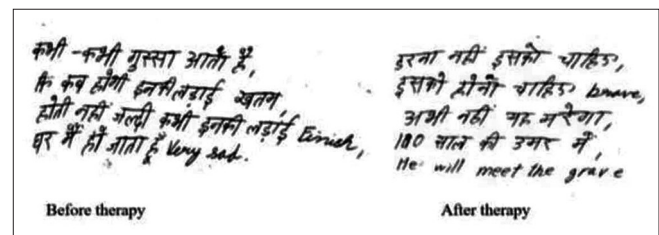 कभी-कभी गुस्सा आता है,
कि कब होगी इनकी लड़ाई खतम,
होती नहीं जल्दी कभी इनकी लड़ाई Finish,
घर में हो जाता हूँ Very sad.
Before therapy
डरना नहीं इसको चाहिए,
इसको होना चाहिए brave,
अभी नहीं यह मरेगा,
100 साल की उमर में,
He will meet the grave
After therapy